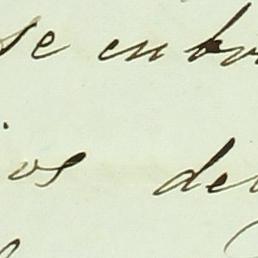 se enbr
os de